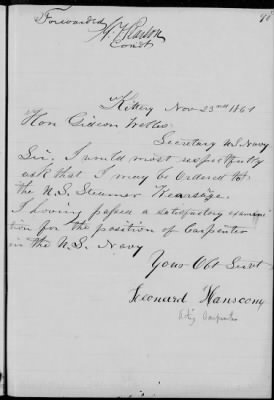 Forwarded
Comdt
Kittery Nov 23rd 1861
Hon Gideon Welles
Secretary U.S. Navy
Sir, I would most respectfully
ask that I may be ordered to
the U.S. Steamer Kearsage.
I having passed a satisfactory examina
tion for the position of Carpenter
in the U.S. Navy
Your Obt Servt
Leonard Hanscom
Carpenter